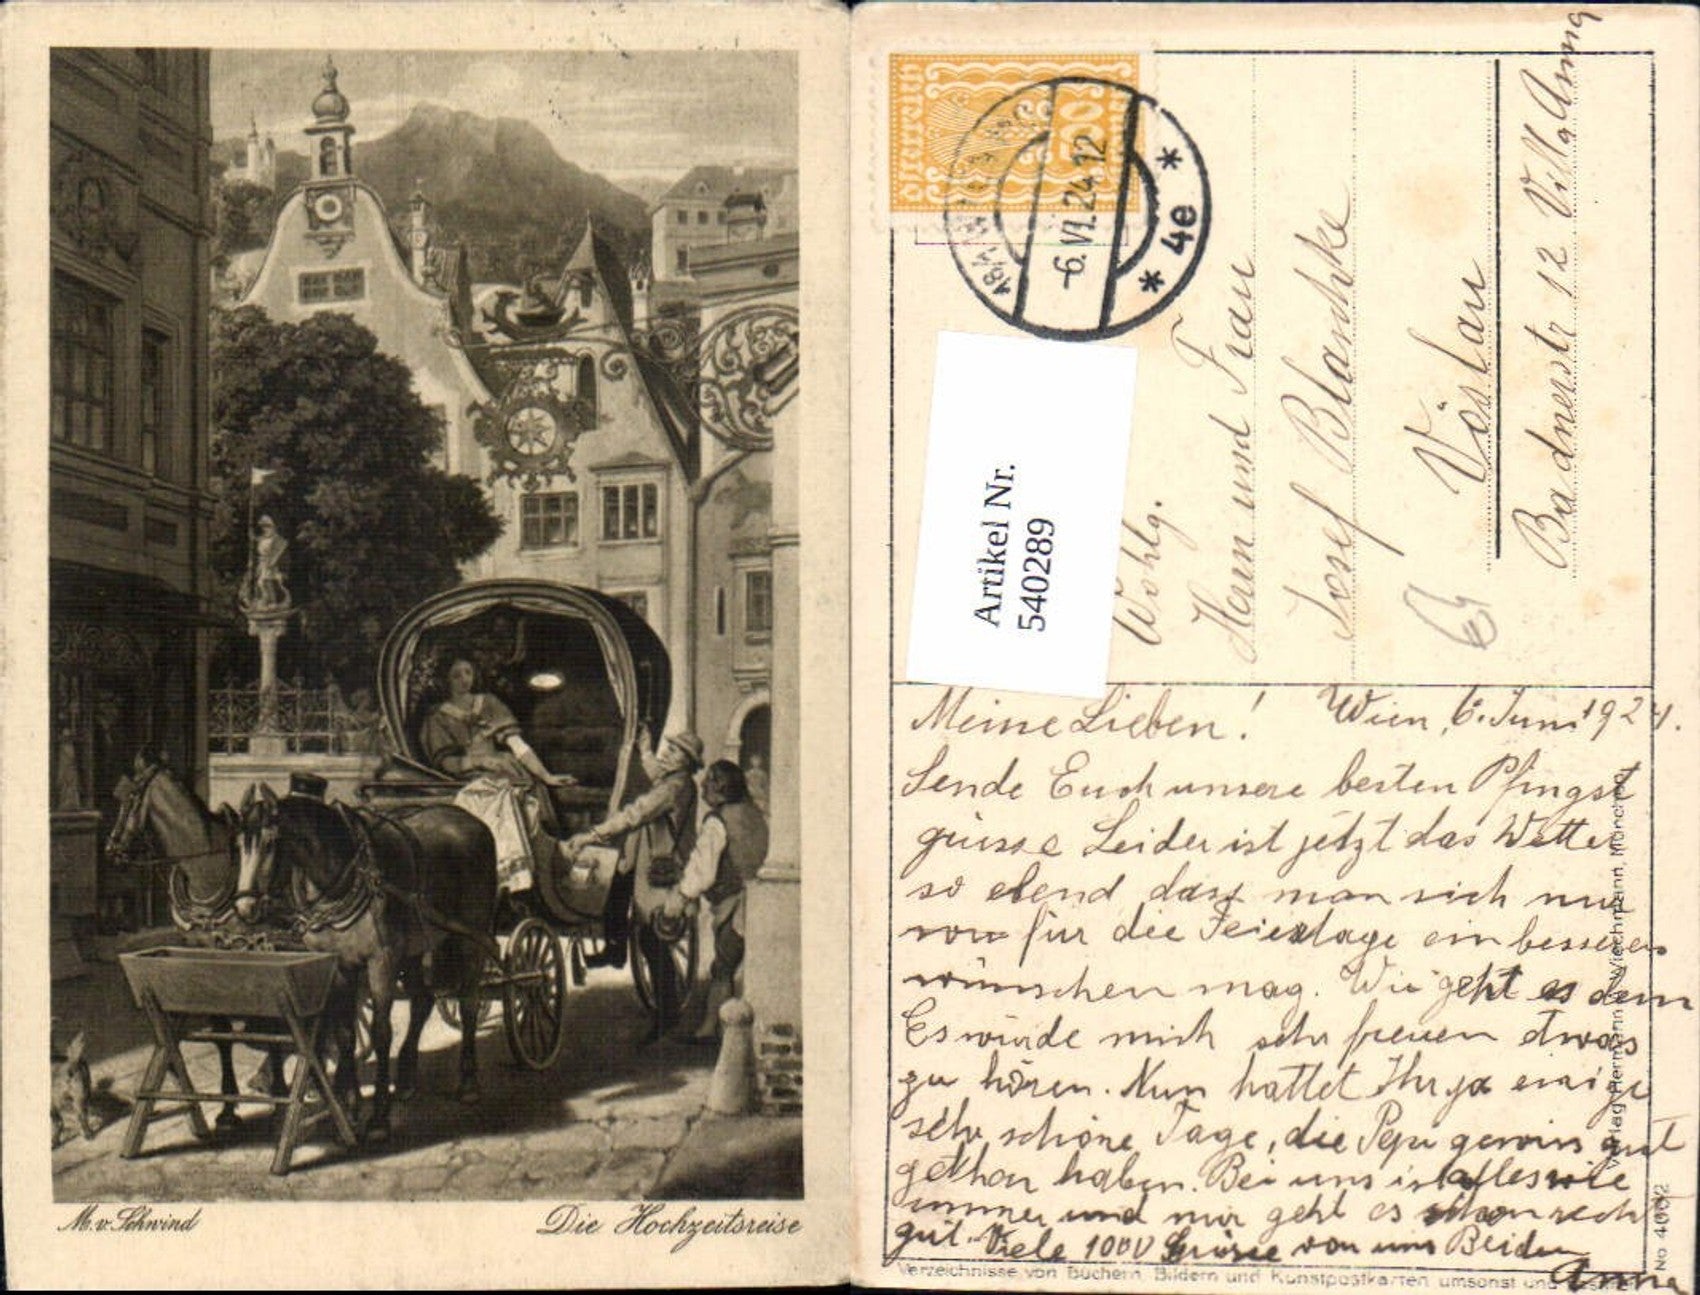 M. v. Schwind
Die Hochzeitsreise
Österreich
6. VI. 24 12
* 4e *
Artikel Nr.
540289
Wohlg.
Herrn und Frau
Josef Blaschke
Vöslau
Badnerstr 12 Villa Anna
Meine Lieben! Wien, 6. Juni 1924.
Sende Euch unsere besten Pfingst
grüsse Leider ist jetzt das Wetter
so elend dass man sich nur
für die Feiertage ein besseres
wünschen mag. Wie geht es denn
Es würde mich sehr freuen etwas
zu hören. Nun hattet Ihr ja einige
sehr schöne Tage, die Pepi gewiss gut
gethan haben. Bei uns ist alles wie
immer und mir geht es schon recht
gut. Viele 1000 Grüsse von uns Beiden
Anna
Verlag Hermann A. Wiechmann, München
No 4002
Verzeichnisse von Büchern, Bildern und Kunstpostkarten umsonst und